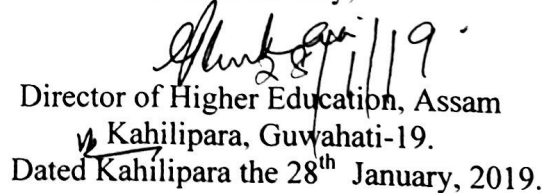 28/1/19.
Director of Higher Education, Assam
Kahilipara, Guwahati-19.
Dated Kahilipara the 28th January, 2019.